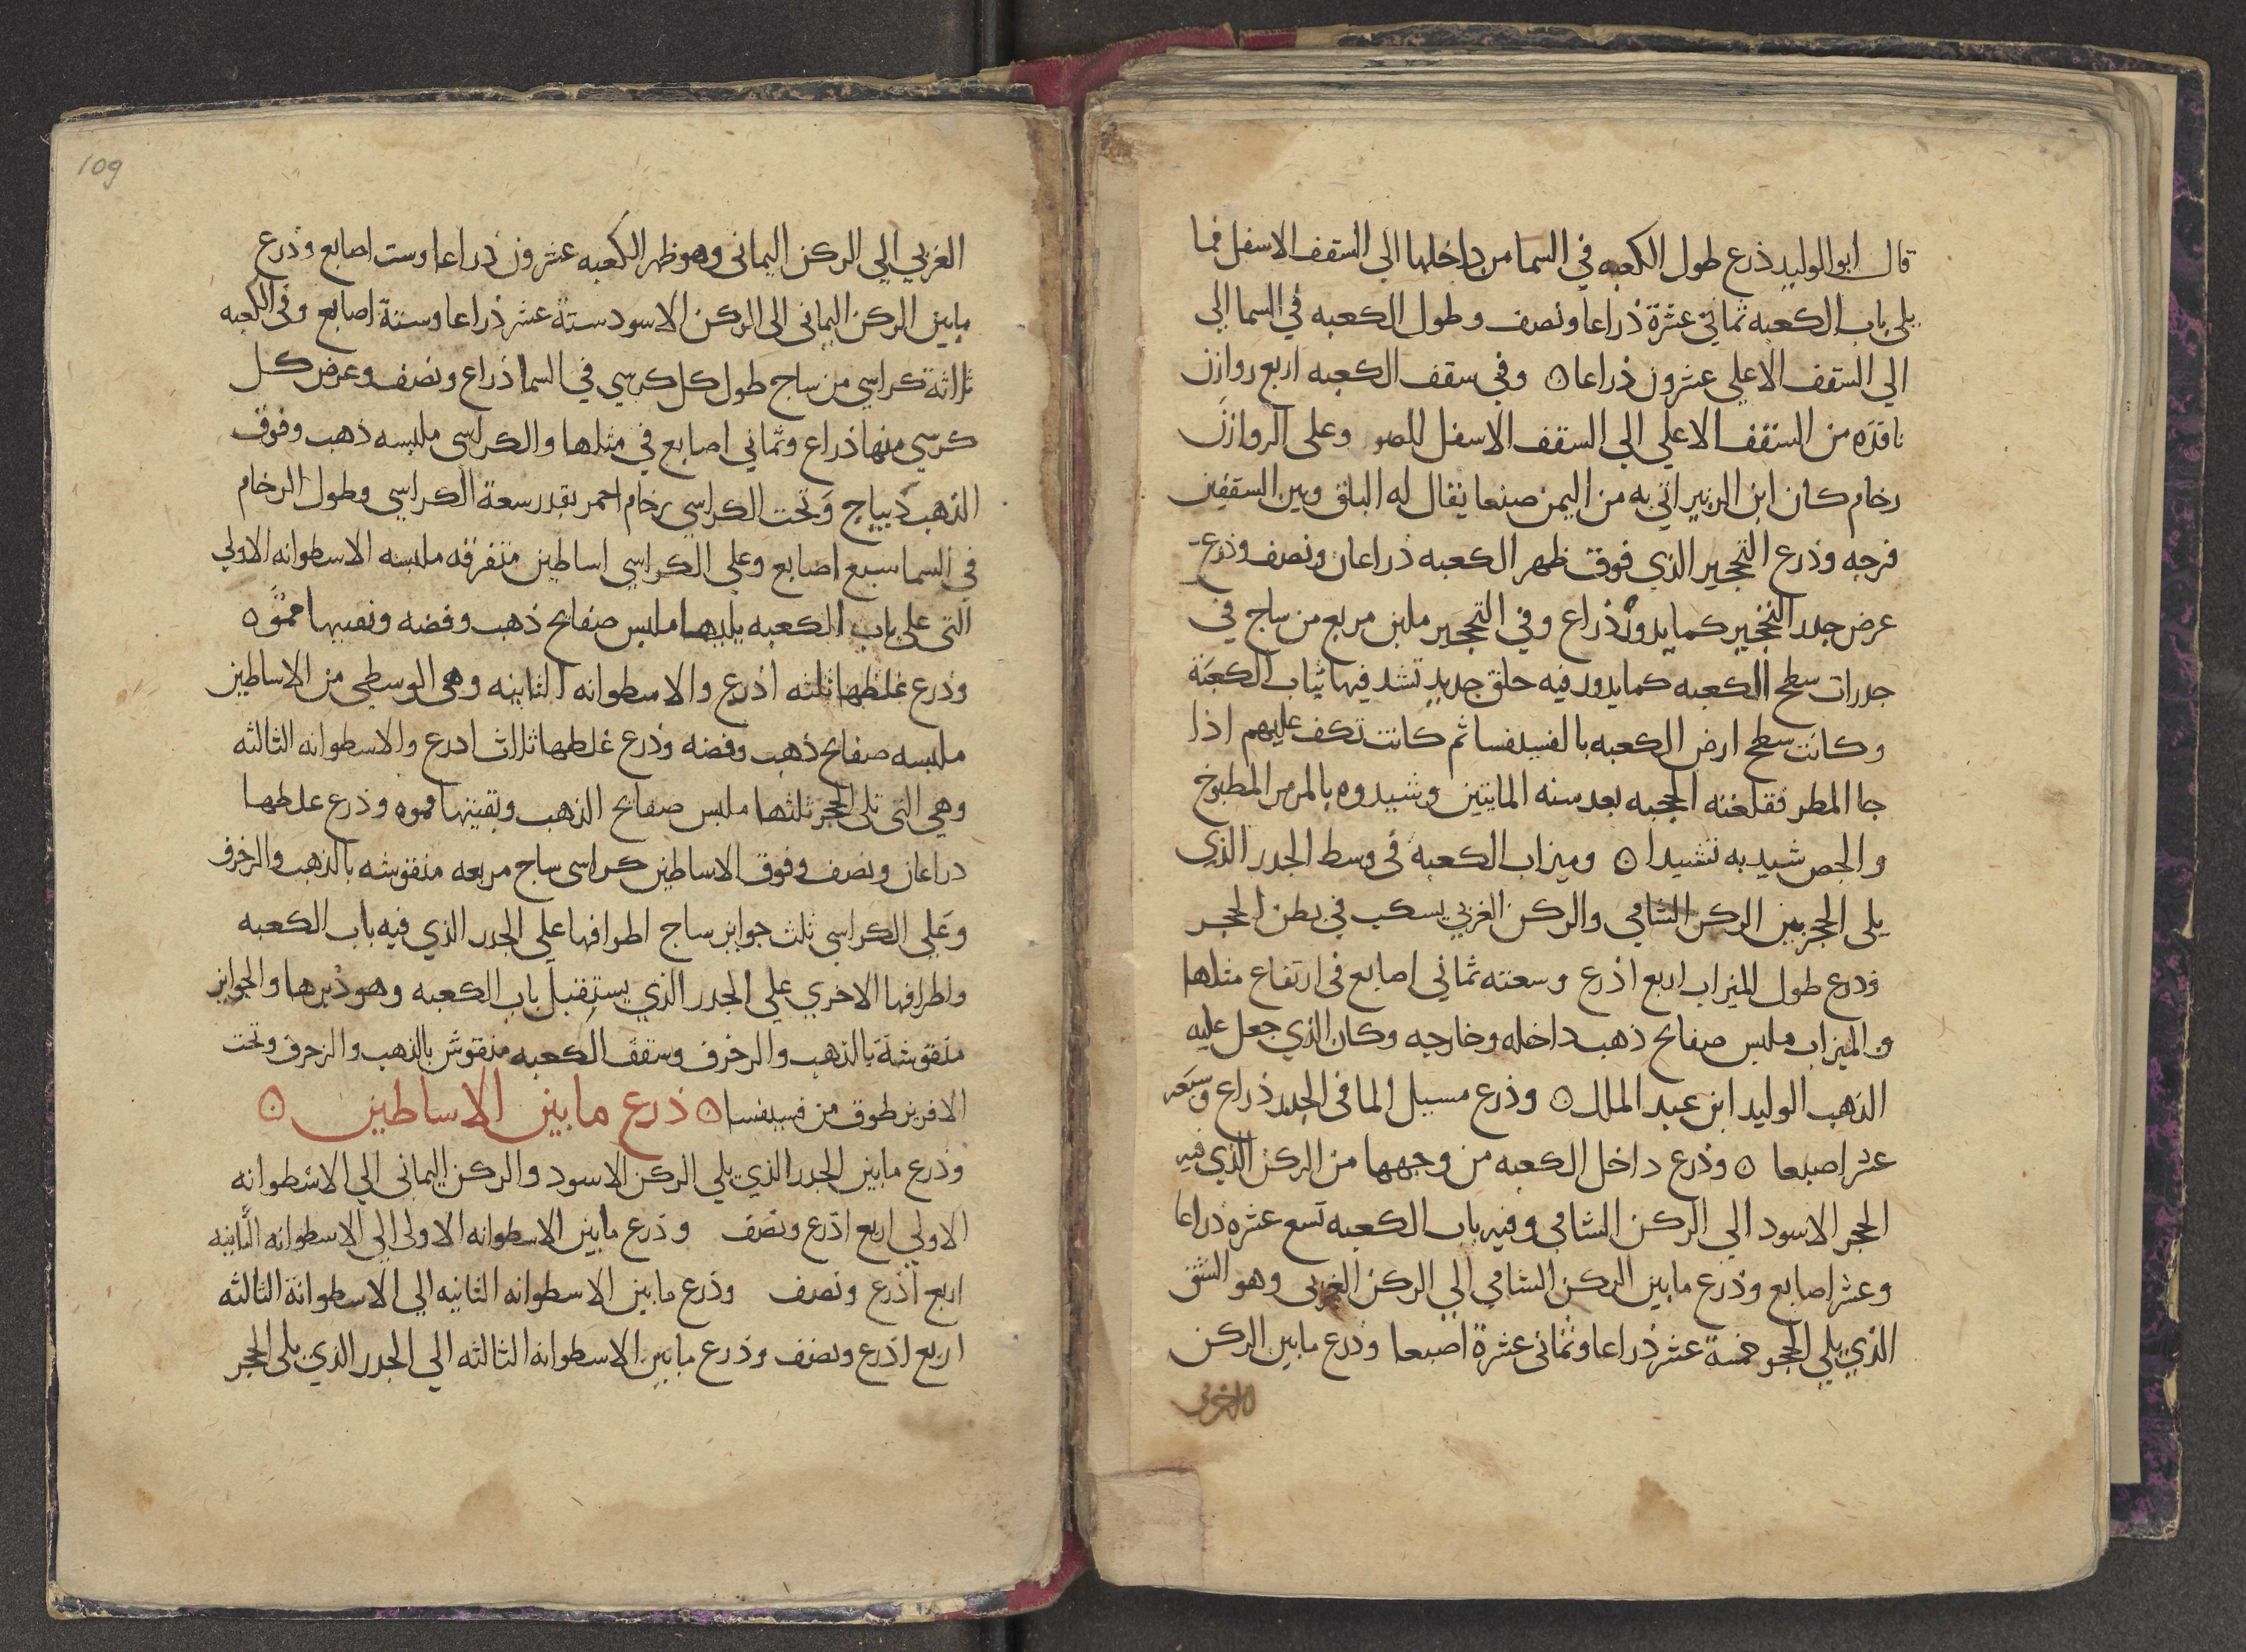 قال ابو الوليد ذرع طول الكعبه في السما من داخلها الي السقف الاسفل فما
يلي باب الكعبه ثماني عشرة ذراعا ونصف وطول الكعبه في السما الي
الي السقف الاعلي عشرون ذراعا ه وفي سقف الكعبه اربع روازن
نافذه من السقف الاعلي الي السقف الاسفل للضو وعلى الروازن
رخام كان ابن الزبير اتي به من اليمن صنعا يقال له البلق وبين السقفين
فرجه وذرع التحجير الذي فوق ظهر الكعبه ذراعان ونصف وذرع
عرض جدر التحجير كما يدور ذراع وفي التحجير ملبن مربع من ساج في
جدرات سطح الكعبه كما يدور فيه حلق حديد تشد فيها ثياب الكعبة
وكانت سطح ارض الكعبه بالفسيفسا ثم كانت تكف عليهم اذا
جا المطر فقلعته الحجبه بعد سنه المايتين وشيدوه بالمرمر المطبوخ
والجص شيد به تشييدا ه وميزاب الكعبه في وسط الجدر الذي
يلى الحجر بين الركن الشامي والركن الغربي يسكب في بطن الحجر
وذرع طول الميزاب اربع اذرع وسعته ثماني اصابع في ارتفاع مثلها
والميزاب ملبس صفايح ذهب داخله وخارجه وكان الذي جعل عليه
الذهب الوليد ابن عبد الملك ه وذرع مسيل الما في الجدر ذراع وسبعه
عشر اصبعا ه وذرع داخل الكعبه من وجهها من الركن الذي فيه
الحجر الاسود الي الركن الشامي وفيه باب الكعبه تسع عشره ذراعا
وعشر اصابع وذرع ما بين الركن الشامي الي الركن الغربي وهو الشق
الذي يلي الحجر خمسة عشر ذراعا وثماني عشرة اصبعا وذرع ما بين الركن
الغربي
109
الغربي الي الركن اليماني وهو ظهر الكعبه عشرون ذراعا وست اصابع وذرع
مابين الركن اليماني الى الركن الاسود ستة عشر ذراعا وستة اصابع وفى الكعبه
ثلاثة كراسي من ساج طول كل كرسي في السما ذراع ونصف وعرض كل
كرسي منها ذراع وثماني اصابع في مثلها والكراسي ملبسه ذهب وفوق
الذهب ديباج وتحت الكراسي رخام احمر بقدر سعة الكراسي وطول الرخام
في السما سبع اصابع وعلي الكراسي اساطين متفرقه ملبسه الاسطوانه الاولي
التي على باب الكعبه يليها ملبس صفايح ذهب وفضه وبقيتها مموه
وذرع غلظها ثلثه اذرع والاسطوانه الثانيه وهي الوسطي من الاساطين
ملبسه صفايح ذهب وفضه وذرع غلظها ثلاث اذرع والاسطوانه الثالثه
وهي التي تلى الحجر ثلثها ملبس صفايح الذهب وبقيتها مموه وذرع غلظها
ذراعان ونصف وفوق الاساطين كراسى ساج مربعه منقوشه بالذهب والزخرف
وعلي الكراسي ثلث جوايز ساج اطرافها علي الجدر الذي فيه باب الكعبه
واطرافها الاخري علي الجدر الذي يستقبل باب الكعبه وهو دبرها والجوايز
منقوشة بالذهب والزخرف وسقف الكعبه منقوش بالذهب والزخرف وتحت
الافريز طوق من فسيفسا ه ذرع ما بين الاساطين ه
وذرع مابين الجدر الذي يلي الركن الاسود والركن اليماني الي الاسطوانه
الاولي اربع اذرع ونصف وذرع مابين الاسطوانه الاولى الي الاسطوانه الثانيه
اربع اذرع ونصف وذرع مابين الاسطوانه الثانيه الي الاسطوانة الثالثه
اربع اذرع ونصف وذرع مابين الاسطوانه الثالثه الي الجدر الذي يلى الحجر